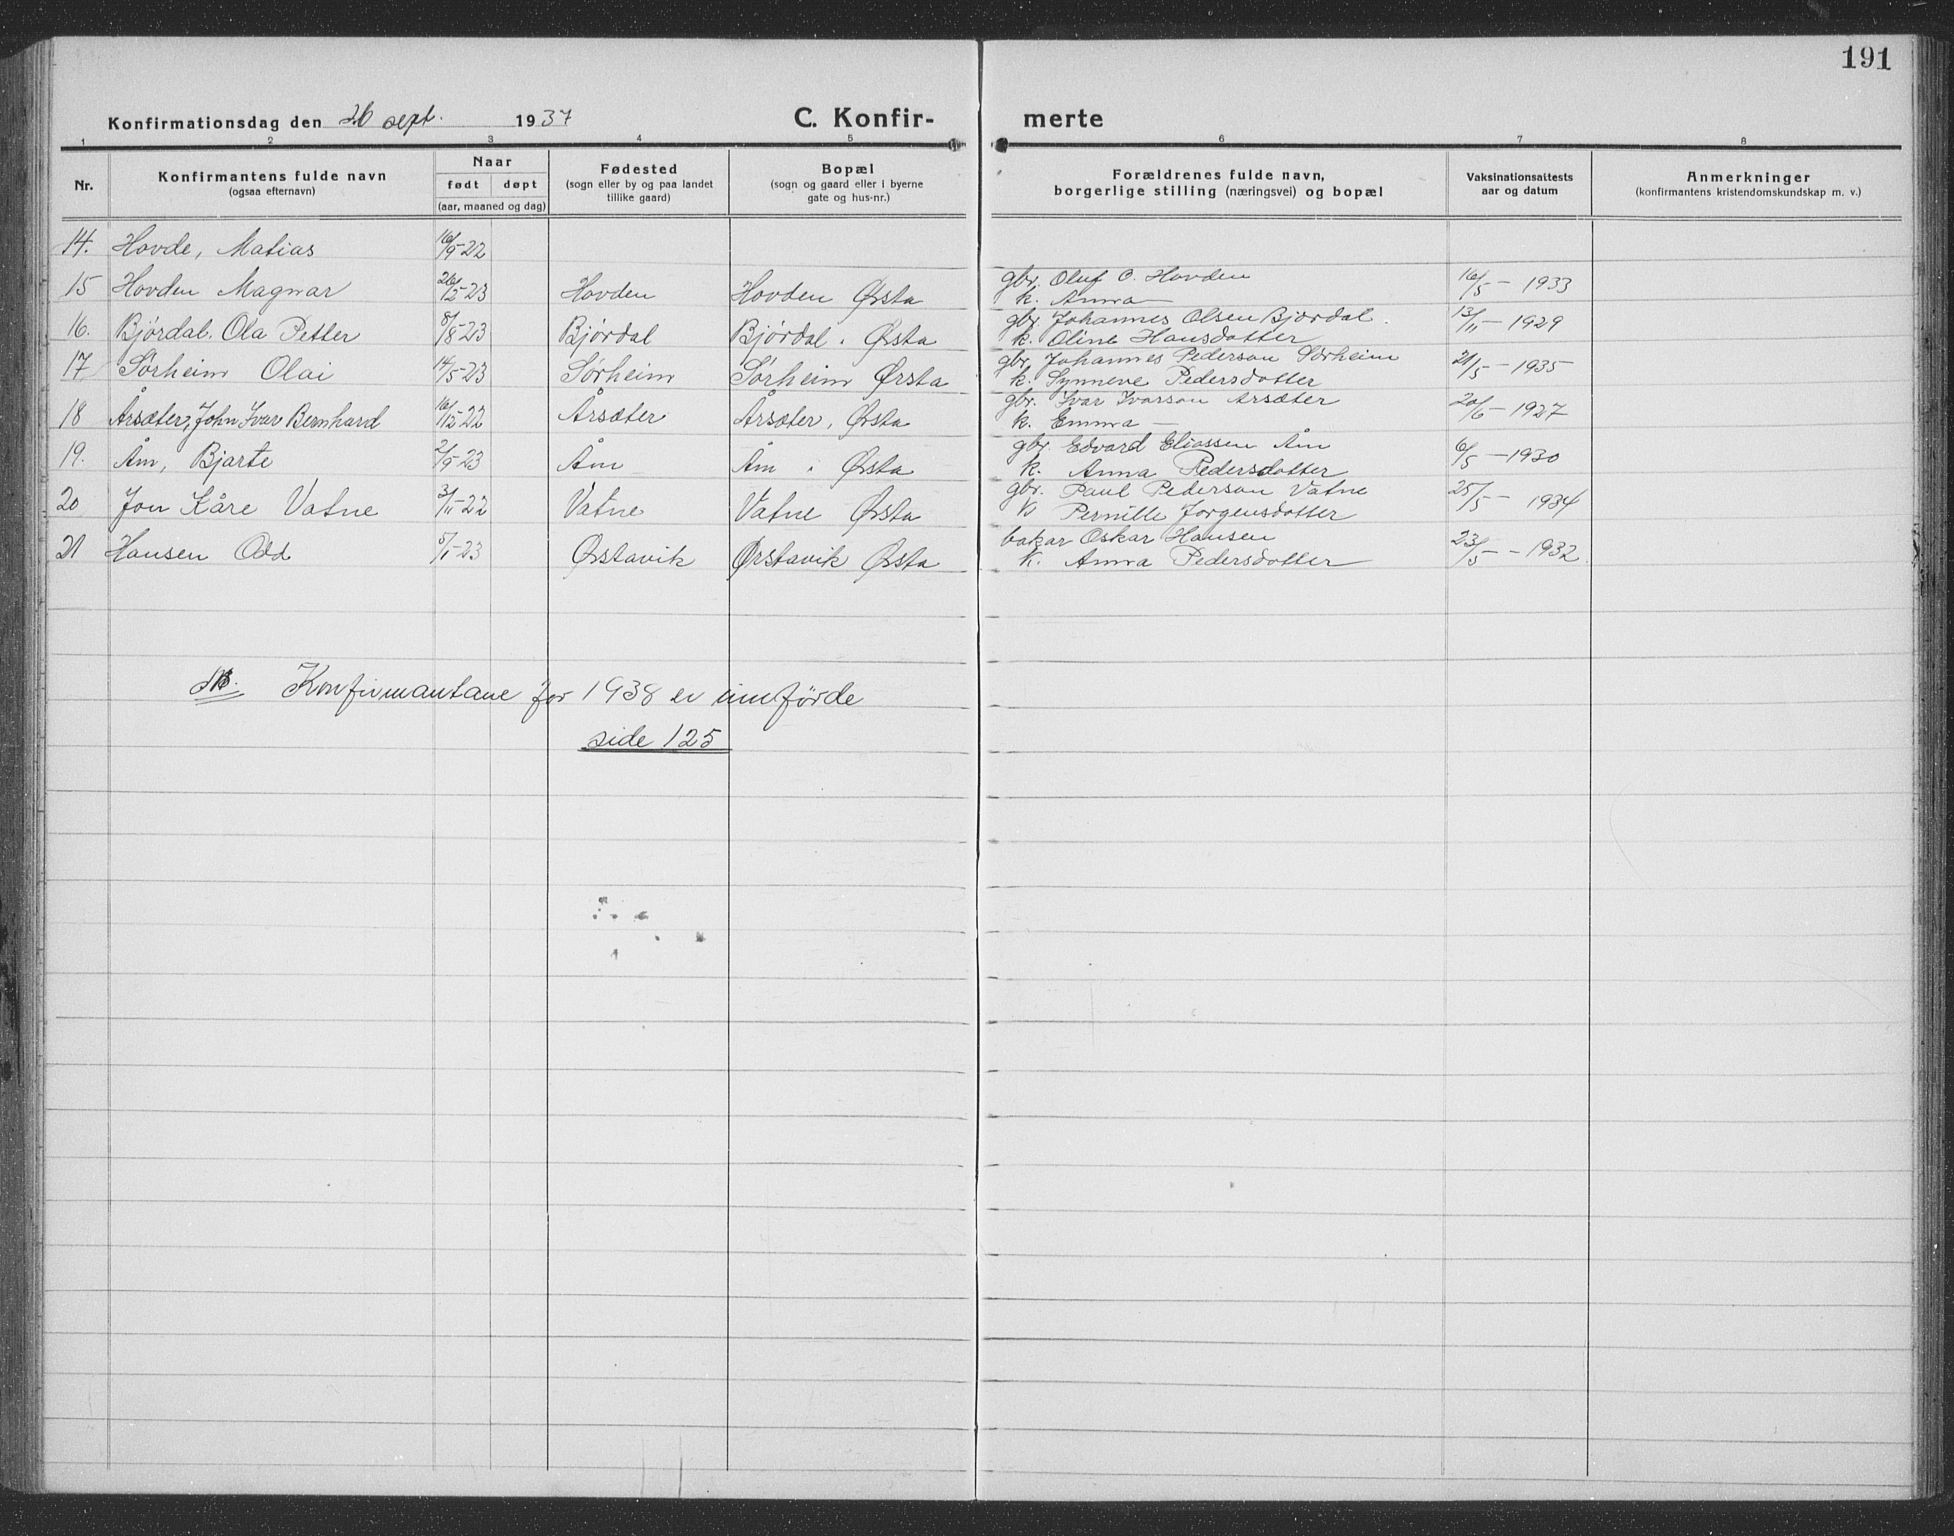 191
Konfirmationsdag den 26 sept. 1937 C. Konfirmerte
1 2 3 4 5 6 7 8
Nr. Konfirmantens fulde navn (ogsaa efternavn) Naar født døpt (aar, maaned og dag) Fødested (sogn eller by og paa landet tillike gaard) Bopæl (sogn og gaard eller i byerne gate og hus-nr.) Forældrenes fulde navn, borgerlige stilling (næringsvei) og bopæl Vaksinationsattests aar og datum Anmerkninger (konfirmantens kristendomskundskap m. v.)
14. Hovde, Matias 16/9-22
15 Hovden Magnar 26/2-23 Hovden Hovden Ørsta gbr. Oluf O. Hovden k. Anna — 16/5 - 1933
16. Bjørdal. Ola Petter 8/8-23 Bjørdal Bjørdal. Ørsta gbr. Johannes Olsen Bjørdal. k. Oline Hansdotter 13/11 - 1929
17 Sørheim Olai 14/5-23 Sørheim Sørheim Ørsta gbr. Johannes Pederson Sørheim k. Synneve Pedersdotter 21/5 - 1935
18 Årsæter, John Ivar Bernhard 16/12-22 Årsæter Årsæter, Ørsta gbr. Ivar Ivarson Årsæter k. Emma — 20/6 - 1927
19. Åm, Bjarte 2/9-23 Åm Åm. Ørsta gbr. Edvard Eliassen Åm k. Anna Pedersdotter 6/5 - 1930
20 Jon Kåre Vatne 3/11-22 Vatne Vatne Ørsta gbr. Paul Pederson Vatne k. Pernille Jørgensdotter 25/5 - 1934
21 Hansen Odd 5/1-23 Ørstavik Ørstavik Ørsta bakar Oskar Hansen k. Anna Pedersdotter 23/5 - 1932.
NB. Konfirmantane for 1938 er innførde
side 125